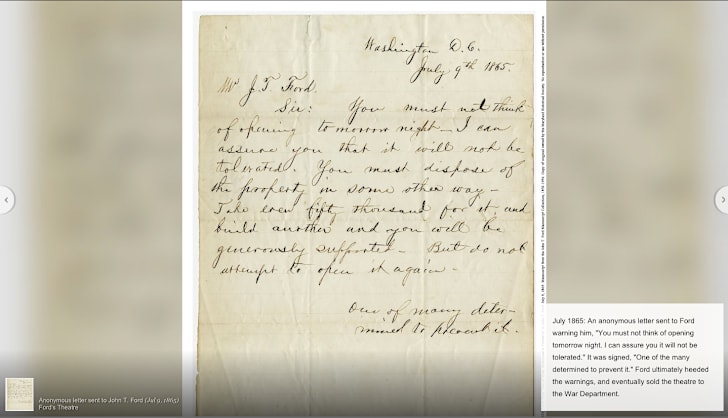 Washington D.C.
July 9th 1865.
Mr J. T. Ford.
Sir: You must not think
of opening tomorrow night — I can
assure you that it will not be
tolerated. You must dispose of
the property in some other way —
Take even fifty thousand for it, and
build another and you will be
generously supported — But do not
attempt to open it again —
One of many deter-
mined to prevent it.
July 1865: An anonymous letter sent to Ford
warning him, "You must not think of opening
tomorrow night. I can assure you it will not be
tolerated." It was signed, "One of the many
determined to prevent it." Ford ultimately heeded
the warnings, and eventually sold the theatre to
the War Department.
Anonymous letter sent to John T. Ford (Jul 9, 1865)
Ford's Theatre